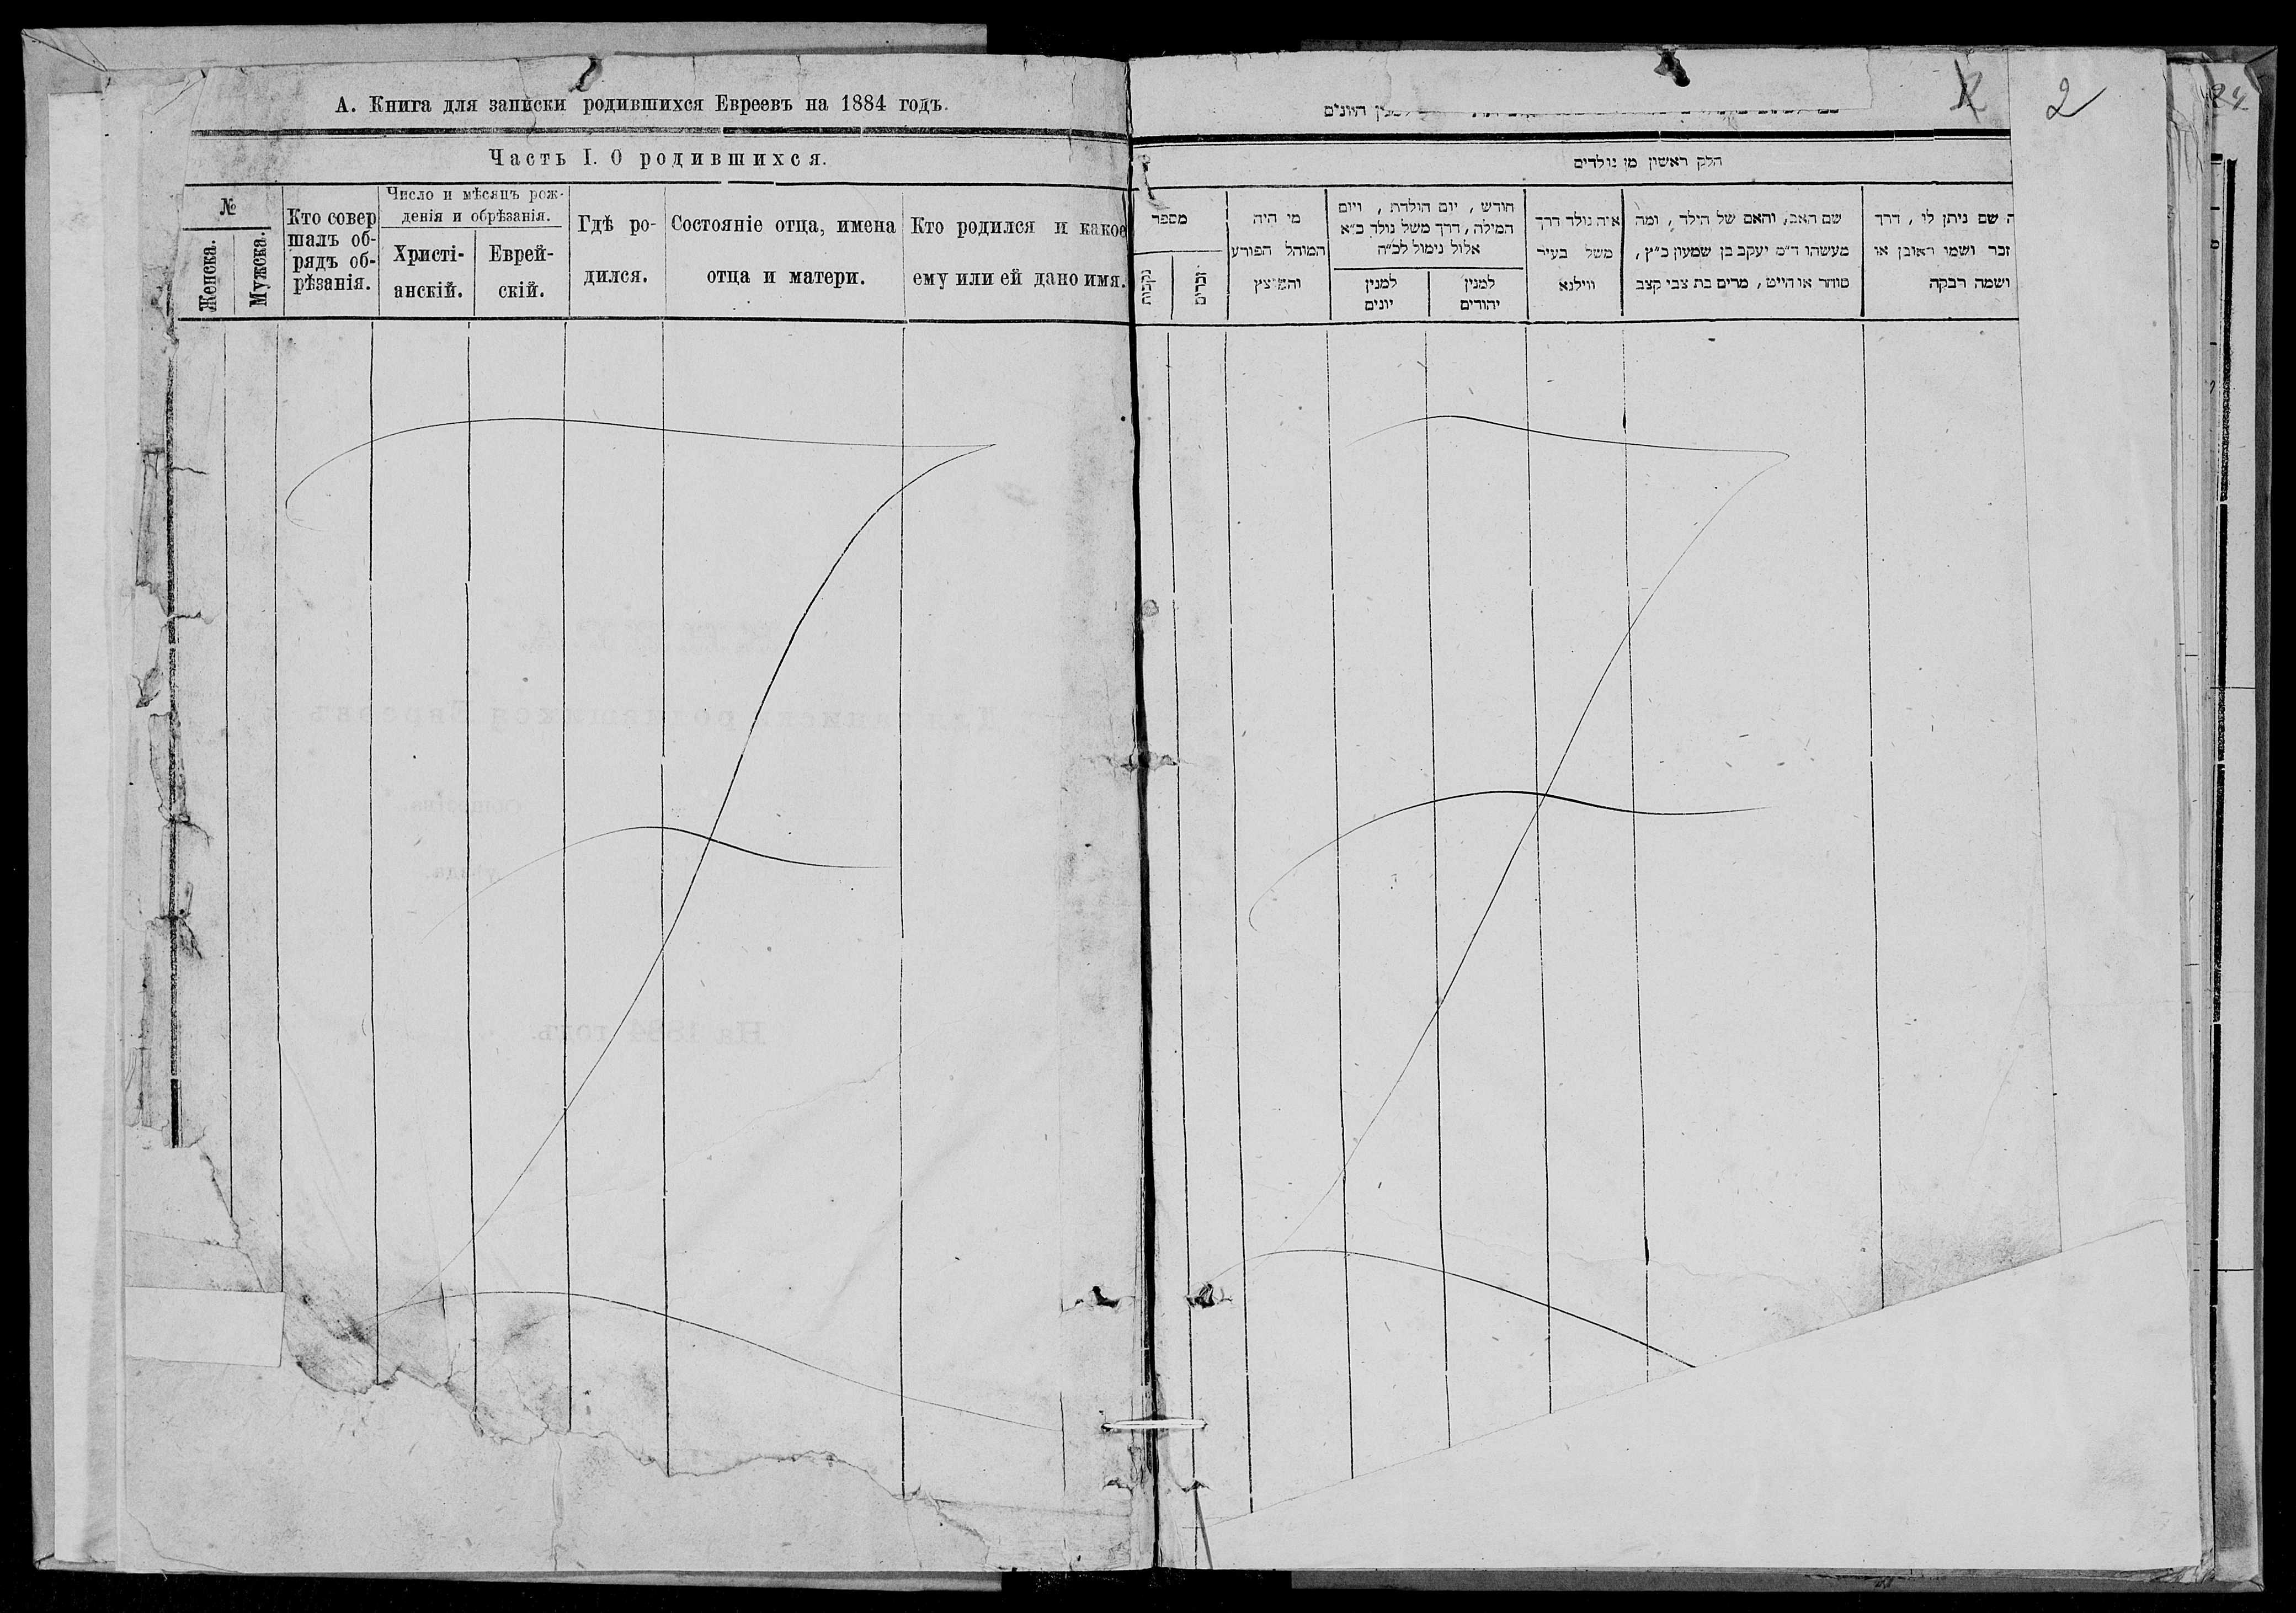 А. Книга для записки родившихся Евреевъ на 1884 годъ.
Часть I. О родившихся.
№
Женска.
Мужска.
Кто совер
шалъ об-
рядъ об-
рѣзанія.
Число и мѣсяцъ рож-
денія и обрѣзанія.
Христі-
анскій.
Еврей-
скій.
Гдѣ ро-
дился.
Состояніе отца, имена
отца и матери.
Кто родился и какое
ему или ей дано имя.
2
למנין היונים
חלק ראשון מן נולדים
מספר
נקבות
זכרים
מי היה
המוהל הפורע
והמצץ
חודש, יום הולדת, ויום
המילה, דרך משל נולד כ״א
אלול נימול לכ״ה
למנין
יונים
למנין
יהודים
איה נולד דרך
משל בעיר
ווילנא
שם האב, והאם של הילד, ומה
מעשהו ד״מ יעקב בן שמעון כ״ץ,
סוחר או חייט, מרים בת צבי קצב
ה שם ניתן לו, דרך
זכר ושמו ראובן או
ושמה רבקה
На 1884 годъ.